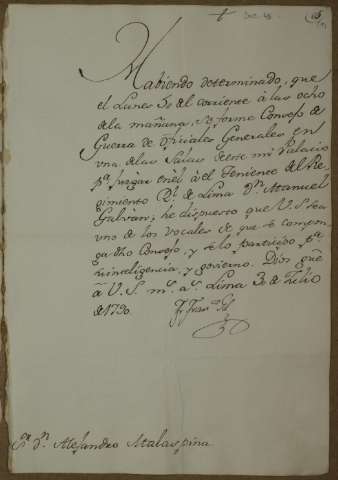 Habiendo determinado, que
el Lunes 5,, del corriente à las ocho
de la mañana, se forme Consejo de
Guerra de Oficiales Generales en
una de las Salas de este mi Palacio
pª juzgar en èl à el Teniente del Re
gimiento Rl. de Lima Dn. Manuel
Galvàn; he dispuesto que V.S. sea
uno de los Vocales de que se compon
ga dho Consejo, y se lo participo pª.
su inteligencia, y govierno. Dios gue
à V.S. ms. as. Lima 3,, de Julio
de 1790.
Fr. Franco Gil
Sr. Dn. Alejandro Malaspina